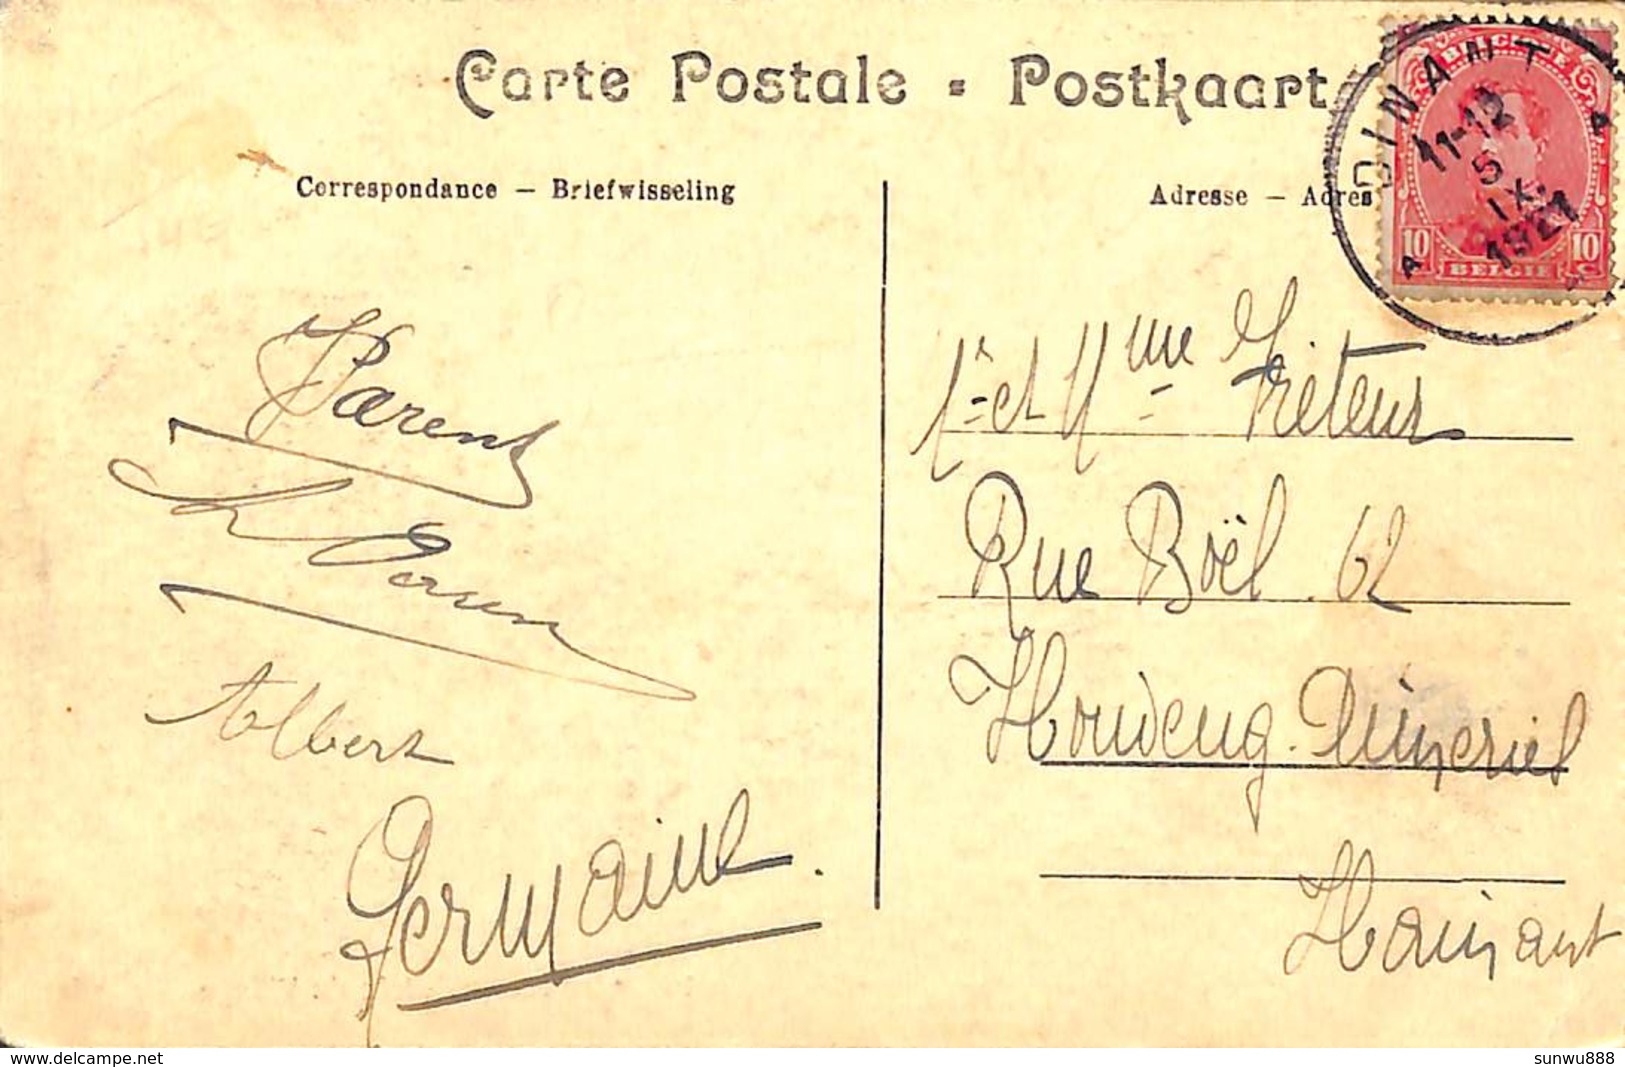 Carte Postale - Postkaart
Correspondance — Briefwisseling
Adresse — Adres
DINANT
11-12
5
IX
1921
A A
BELGIQUE
10 10
BELGIE
Parent
Albert
Germaine.
Mr et Mme Friteur
Rue Boël. 62
Houdeng-Aimeries
Hainaut
delcampe.net
sunwu888